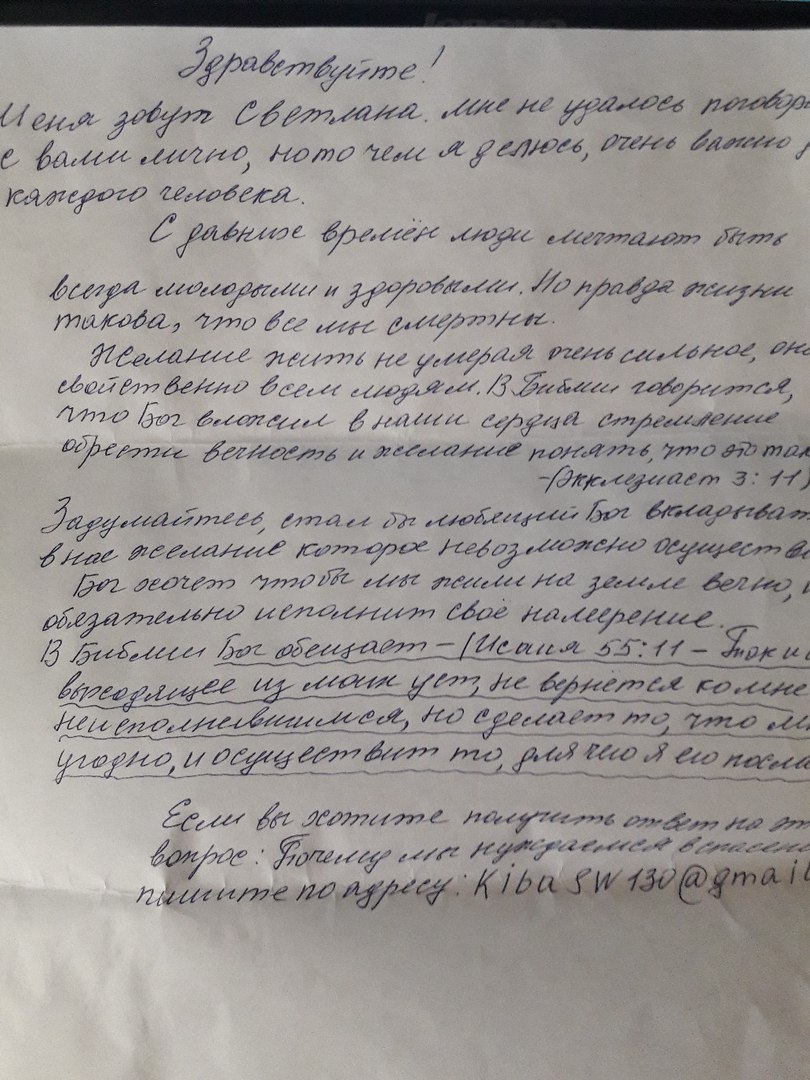 lenovo
Здравствуйте!
Меня зовут Светлана. мне не удалось погово
с вами лично, но то чем я делюсь, очень важно д
каждого человека.
С давних времён люди мечтают быть
всегда молодыми и здоровыми. Но правда жизни
такова, что все мы смертны.
Желание жить не умерая очень сильное, оно
свойственно всем людям. В Библии говорится,
что Бог вложил в наши сердца стремление
обрести вечность и желание понять, что это так
-(Экклезиаст 3:11)
Задумайтесь, стал бы любящий Бог вкладыват
в нас желание которое невозможно осуществ
Бог хочет чтобы мы жили на земле вечно, и
обязательно исполнит своё намерение.
В Библии Бог обещает - (Исаия 55:11 - Так и
выходящее из моих уст, не вернется ко мне
неисполнившимся, но сделает то, что м
угодно, и осуществит то, для чего я его посла
Если вы хотите получить ответ на эт
вопрос: Почему мы нуждаемся в спасени
пишите по адресу: KibaSW130@gmail